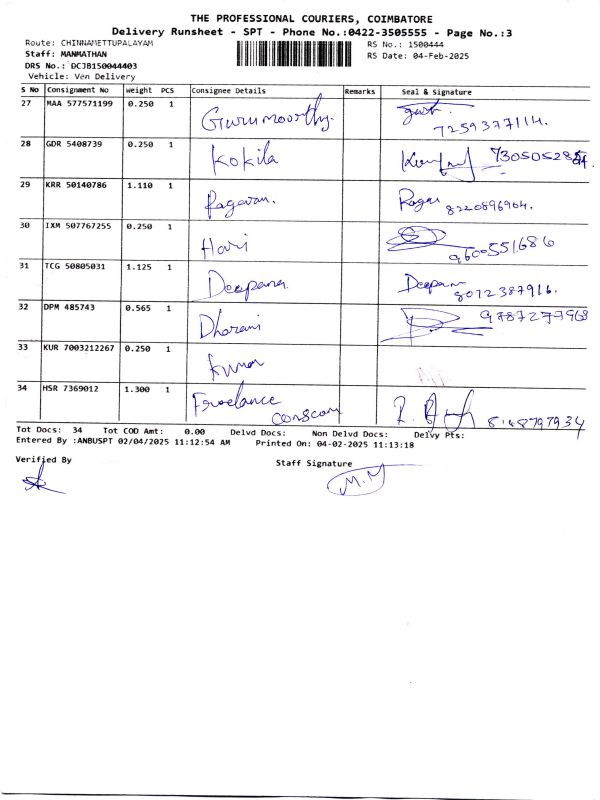 THE PROFESSIONAL COURIERS, COIMBATORE
Delivery Runsheet - SPT - Phone No.:0422-3505555 - Page No.:3
Route: CHINNAMETTUPALAYAM RS No.: 1500444
Staff: MANMATHAN RS Date: 04-Feb-2025
DRS No.: DCJB150044403
Vehicle: Van Delivery
S No Consignment No Weight PCS Consignee Details Remarks Seal & Signature
27 MAA 577571199 0.250 1 Gurumoorthy.
7259377114.
28 GDR 5408739 0.250 1 Kokila
29 KRR 50140786 1.110 1 Ragavan. Ragav
8220896904.
30 IXM 507767255 0.250 1 Hari
9600551686
31 TCG 50805031 1.125 1 Deepana. Deepana
8072387916.
32 DPM 485743 0.565 1 Dharani 9787277968
33 KUR 7003212267 0.250 1 Kumar
34 HSR 7369012 1.300 1 Freelance
Tot Docs: 34 Tot COD Amt: 0.00 Delvd Docs: Non Delvd Docs: Delvy Pts:
Entered By :ANBUSPT 02/04/2025 11:12:54 AM Printed On: 04-02-2025 11:13:18
Verified By Staff Signature
M.M